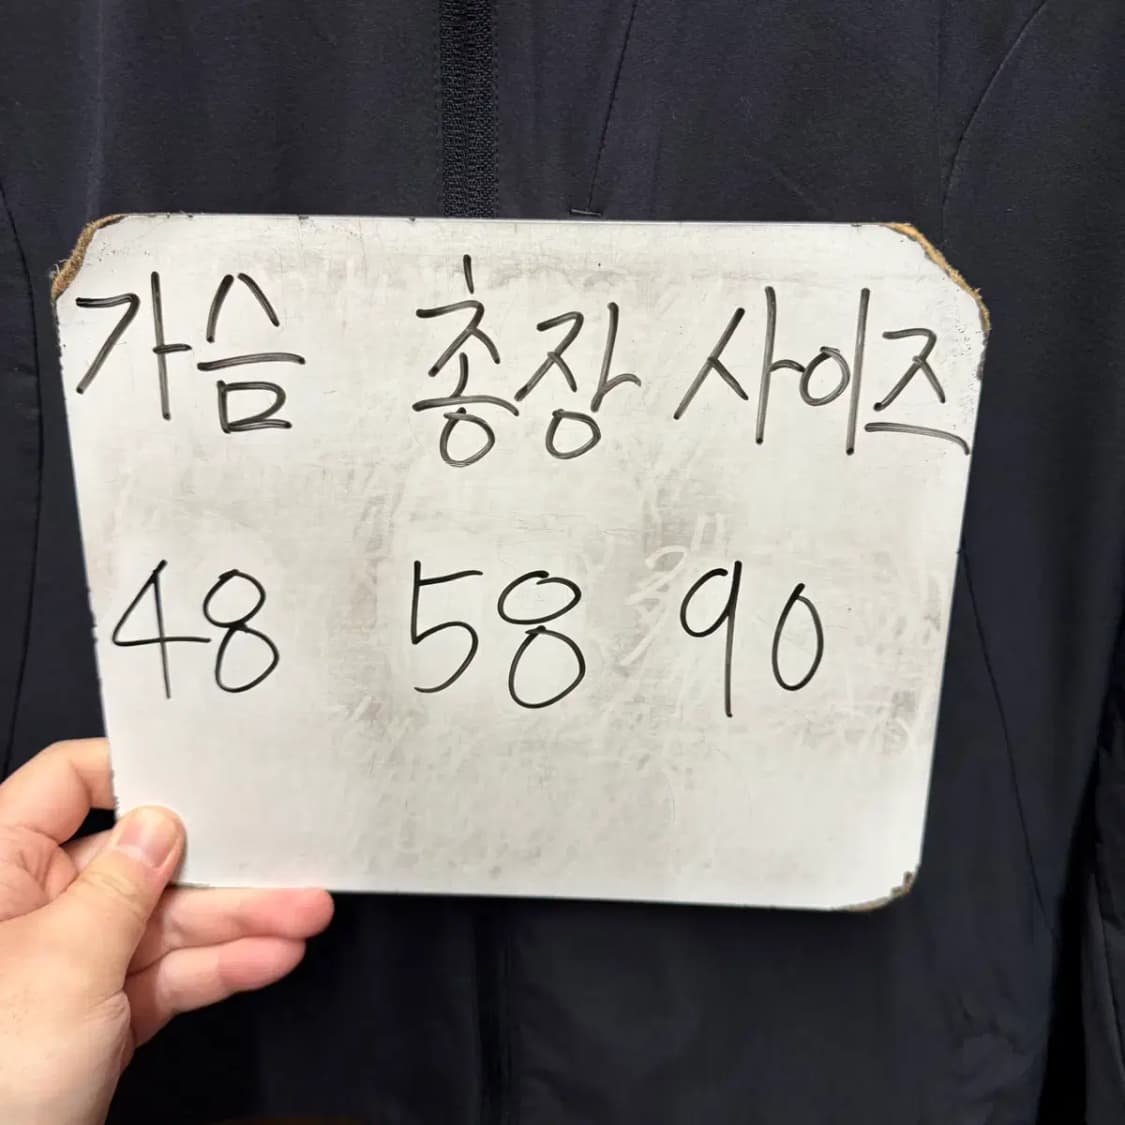 가슴 총장 사이즈
48 58 90